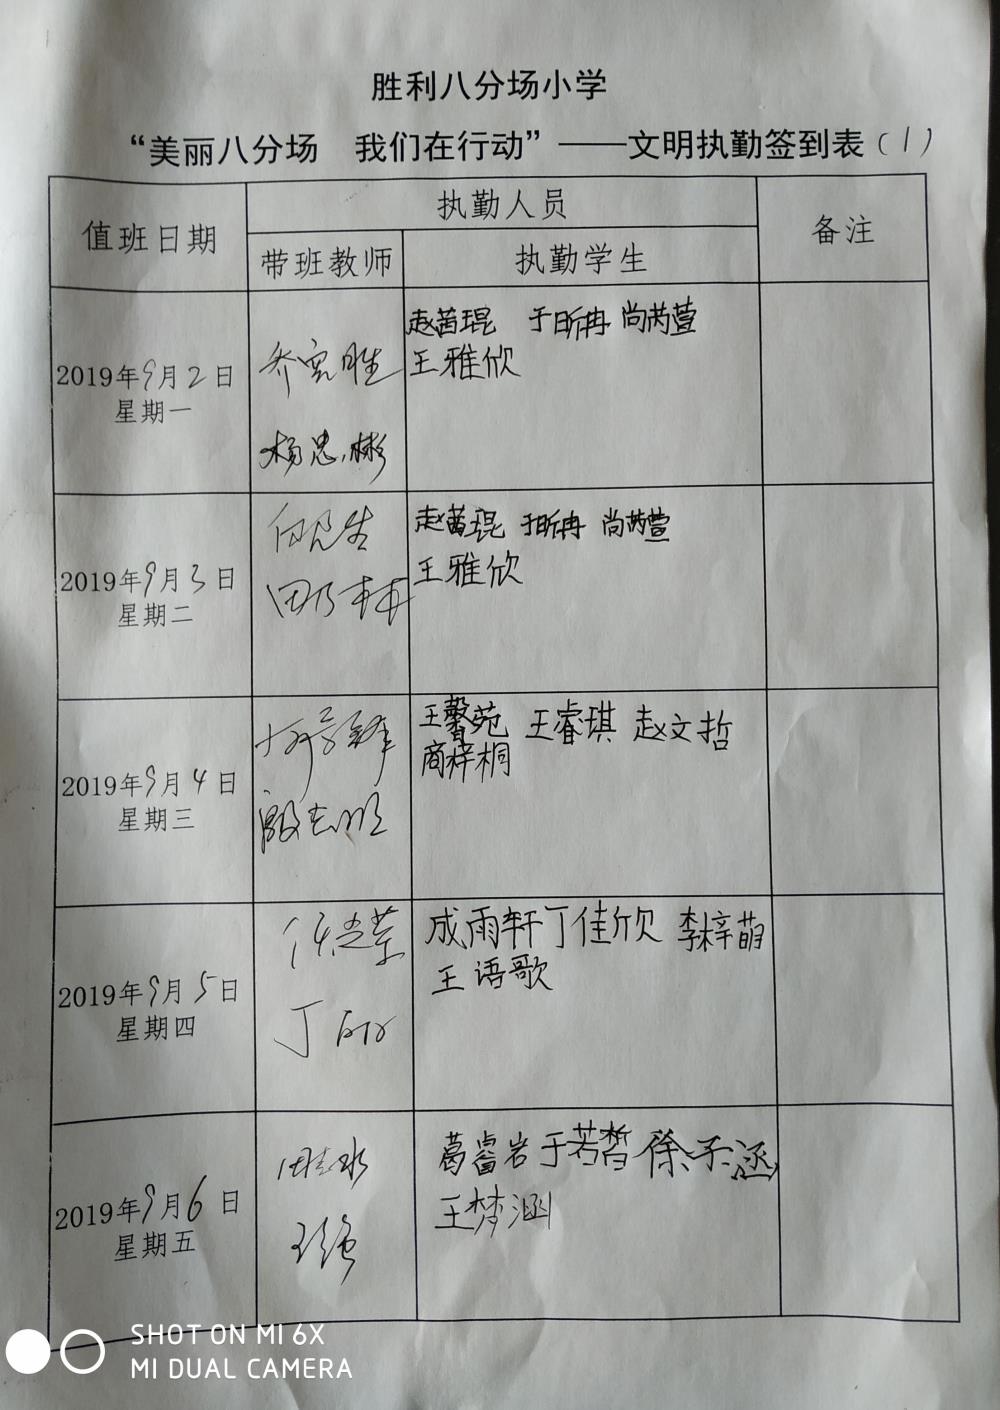 胜利八分场小学
“美丽八分场 我们在行动”——文明执勤签到表(1)
值班日期
执勤人员
备注
带班教师
执勤学生
2019年9月2日
星期一
乔宪胜
杨忠彬
赵茜琨 于昕冉 尚芮萱
王雅欣
2019年9月3日
星期二
田乃
赵茜琨 于昕冉 尚芮萱
王雅欣
2019年9月4日
星期三
殷志明
王馨苑 王睿琪 赵文哲
商梓桐
2019年9月5日
星期四
丁丽
成雨轩 丁佳欣 李梓萌
王语歌
2019年9月6日
星期五
王强
葛睿岩 于若皙 徐子涵
王梦涵
SHOT ON MI 6X
MI DUAL CAMERA